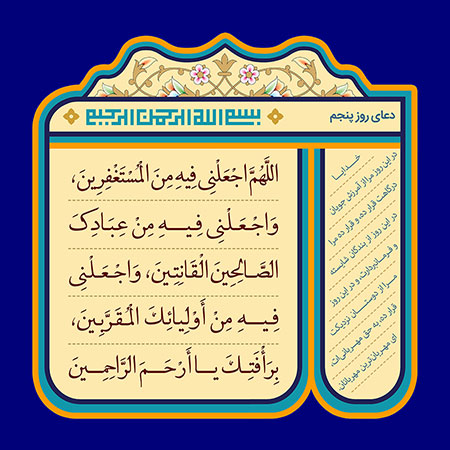 دعای روز پنجم
بسم الله الرحمن الرحیم
اللَّهُمَّ اجْعَلْنِی فِیهِ مِنَ الْمُسْتَغْفِرِینَ،
وَاجْعَلْنِی فِیهِ مِنْ عِبَادِکَ
الصَّالِحِینَ الْقَانِتِینَ، وَاجْعَلْنِی
فِیهِ مِنْ أَوْلِیائِکَ الْمُقَرَّبِینَ،
بِرَأْفَتِکَ یا أَرْحَمَ الرَّاحِمِینَ
خدایا
در این روز مرا از آمرزش جویان
درگاهت قرار ده، و قرار ده مرا
در این روز از بندگان شایسته
و فرمانبردارت، و در این روز
مرا از دوستان نزدیکت
قرار ده، به حق مهربانی‌ات،
ای مهربان‌ترین مهربانان.